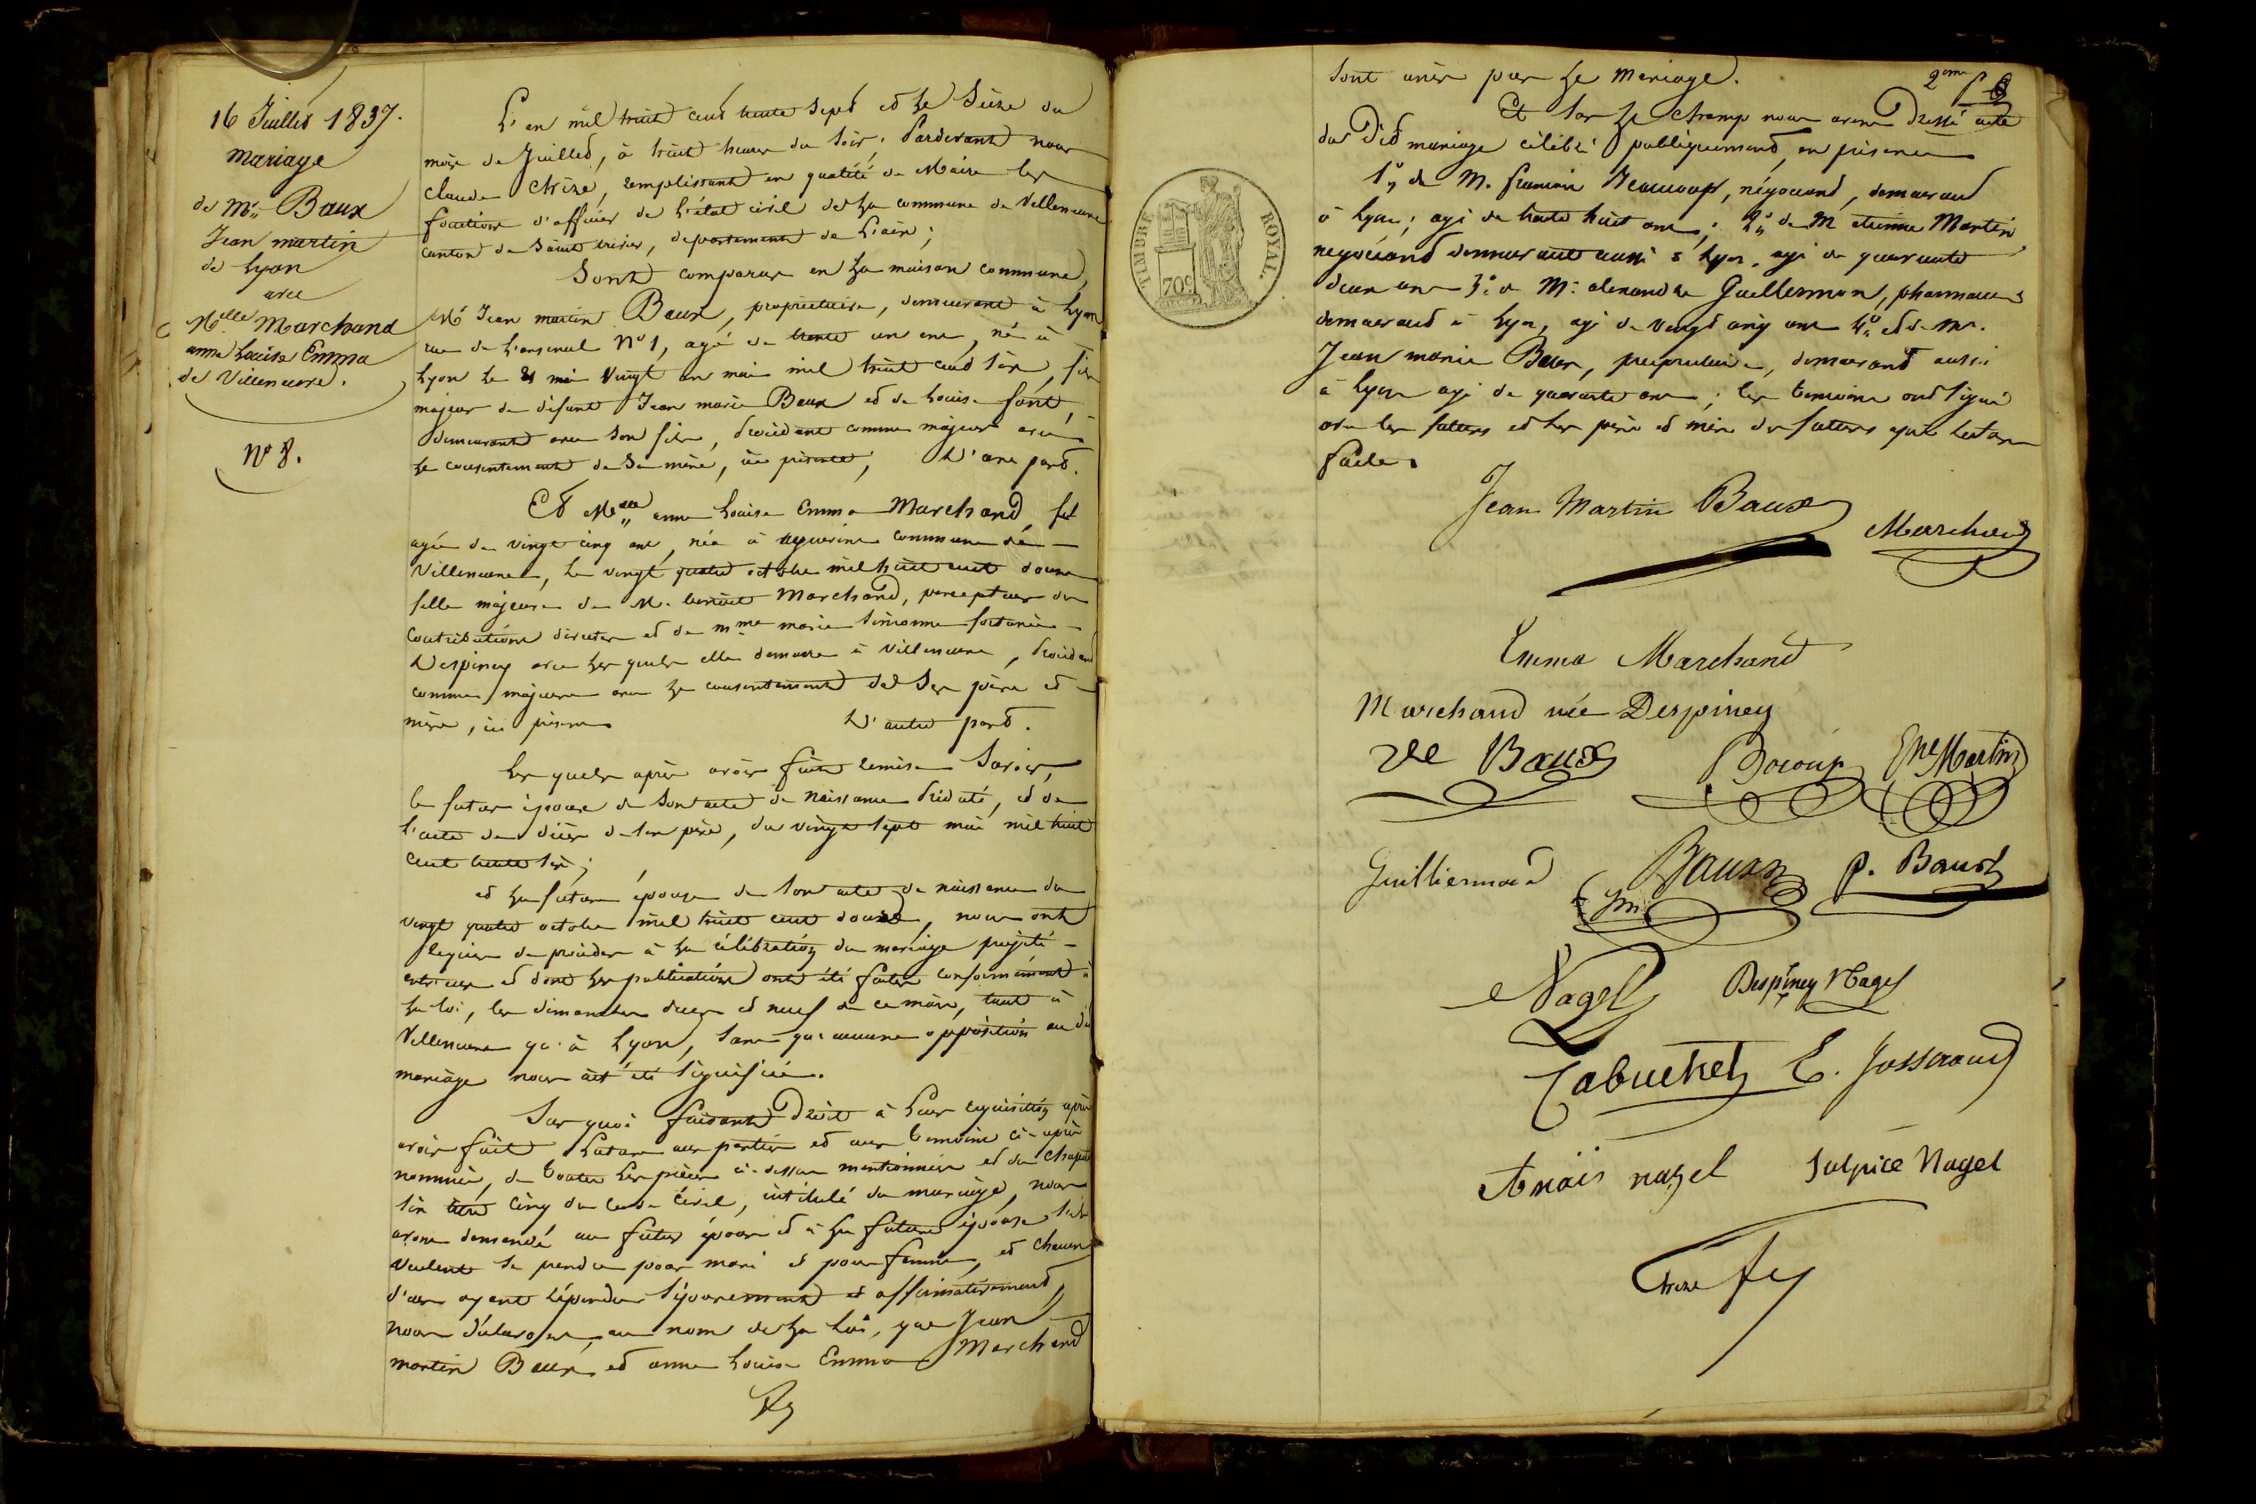 16 Juillet 1837.
Mariage
de Mr Baux
Jean martin
de Lyon
avec
Melle Marchand
anne Louise Emma
de Villeneuve.
No 8.
L'an mil huit cent trente sept et le Seize du
mois de Juillet, à huit heures du soir. Pardevant nous
Claude Chize, remplissant en qualité de Maire les
fonctions d'officier de l'état civil de la commune de Villeneuve
canton de Saint trivier, département de l'ain;
Sont comparus en la maison commune,
Mr Jean martin Baux, propriétaire, demeurant à Lyon
rue de l'arsenal No 1, agé de trente un ans, né à
Lyon le 21 mai Vingt un mai mil huit cent six, fils
majeur de défunt Jean marie Baux et de Louise font,
demeurant avec son fils, procédant comme majeur avec
le consentement de sa mère, ici présente, D'une part.
Et Melle anne Louise Emma Marchand,
agée de vingt cinq ans, née à commune de
Villeneuve, le vingt quatre octobre mil huit cent douze
fille majeure de M. benoit Marchand, percepteur des
Contributions directes et de mme marie
Despiney avec lesquels elle demeure à Villeneuve, procédant
comme majeure avec le consentement de ses père et
mère, ici présens D'autre part.
Lesquels après avoir fait remise Savoir,
le futur époux de son acte de naissance prédaté, et de
l'acte de décès de son père, du vingt sept mai mil huit
cent trente six;
et la future épouse de son acte de naissance du
vingt quatre octobre mil huit cent douze, nous ont
requis de procéder à la célébration du mariage projeté
entr'eux et dont les publications ont été faites conformément à
la loi, les dimanches deux et neuf de ce mois, tant à
Villeneuve qu'à Lyon, sans qu'aucune opposition au dit
mariage nous ait été signifiée.
Sur quoi faisant Droit à leur requisition après
avoir fait lecture aux parties et aux temoins ci-après
nommés, de toutes les pièces ci-dessus mentionnées et du chapitre
six titre cinq du code civil, intitulé du mariage, nous
avons demandé au futur époux et à la future épouse s'ils
veulent se prendre pour mari et pour femme, et chacun
d'eux ayant répondu séparement et affirmativement
nous déclarons, au nom de la loi, que Jean
martin Baux et anne Louise Emma Marchand
sont unis par le mariage.
2eme
Et sur le champ nous avons Dressé acte
du Dit mariage célébré publiquement, en présence
1° de M. françois Beaucoup, négociant, demeurant
à Lyon; agé de trente huit ans; 2° de M etienne Martin
negociant demeurant aussi à Lyon, agé de quarante
deux ans 3° de Mr alexandre Guillermon, pharmacien
demeurant à Lyon, agé de vingt cinq ans 4° et de Mr.
Jean marie Baux, propriétaire, demeurant aussi
à Lyon agé de quarante ans; les temoins ont signé
avec les futurs et les père et mère des futurs après lecture
faite.
TIMBRE ROYAL.
70c
Jean Martin Baux
Marchand
Emma Marchand
Marchand née Despiney
Vve Baux
Bocoup
Etne Martin
Guilliermond
Jm Baux
P. Baux
Nagel
Despiney Nagel
Tabuchet
E. Josserand
Anaïs nagel
Sulpice Nagel
Chize